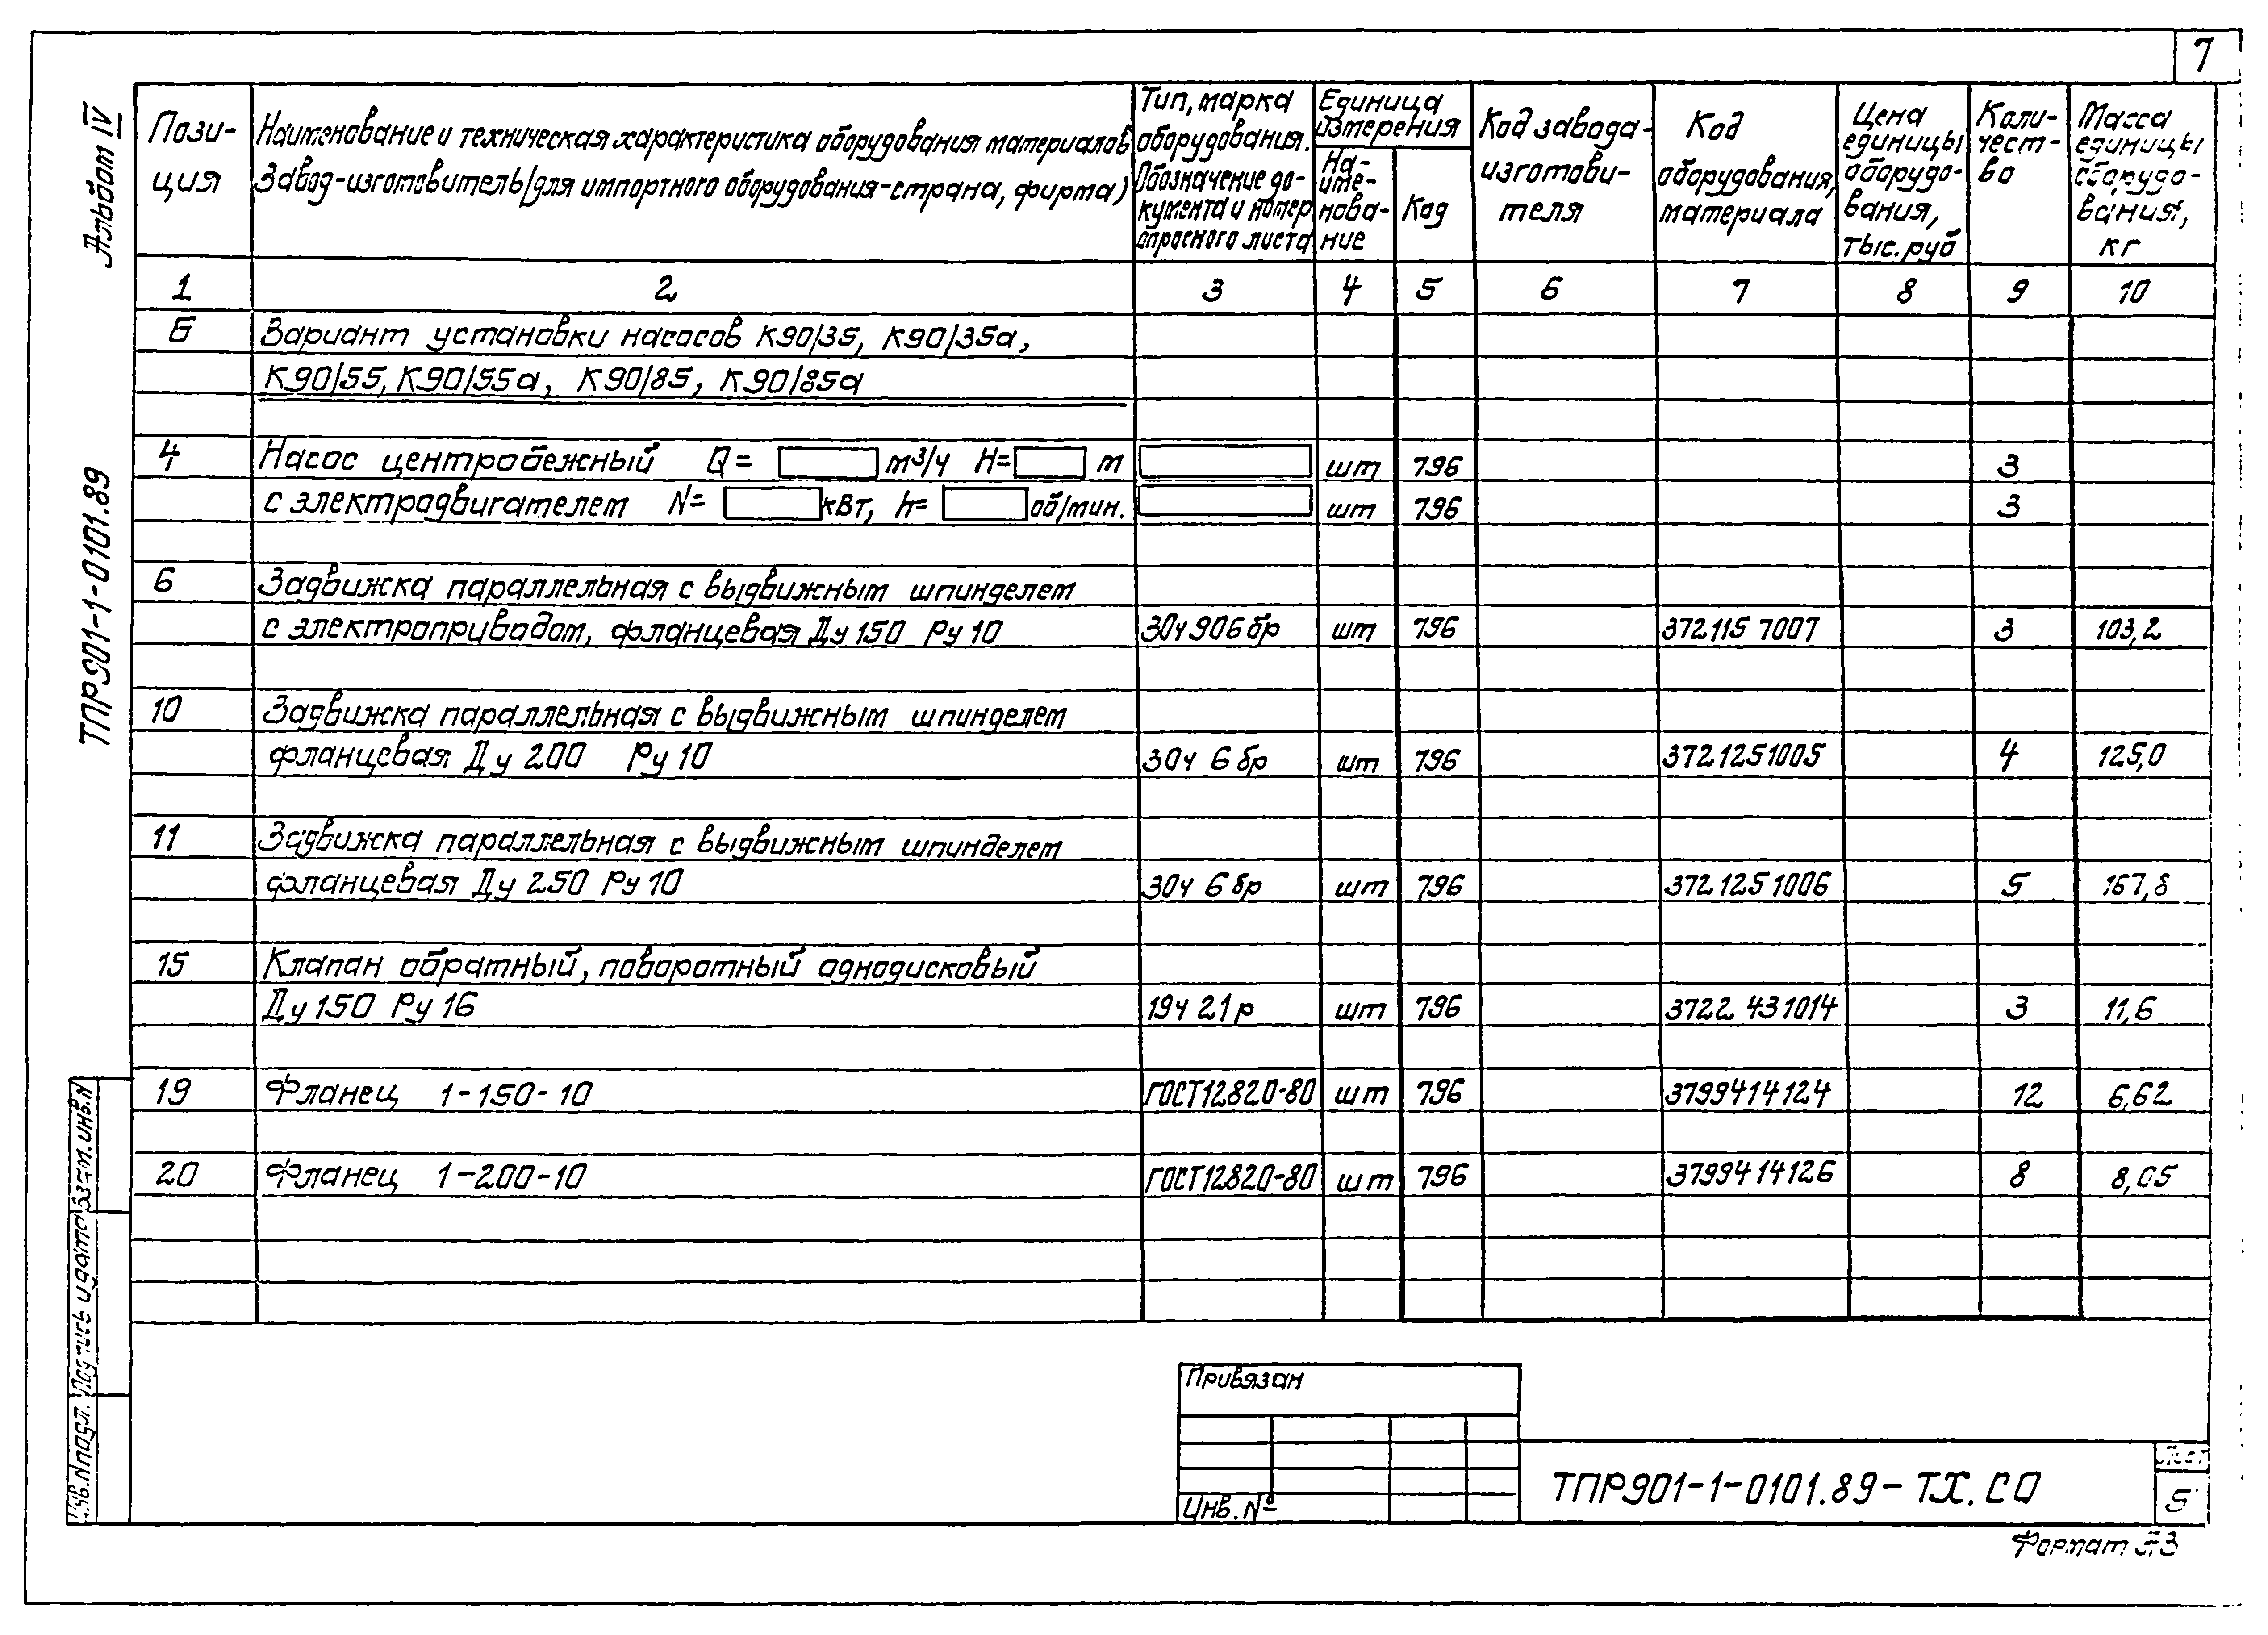 7
Альбом IV
ТПР901-1-0101.89
Пози-
ция
Наименование и техническая характеристика оборудования материалов
Завод-изготовитель(для импортного оборудования-страна, фирма)
Тип, марка
оборудования.
Обозначение до-
кумента и номер
опросного листа
Единица
измерения
На-
име-
нова-
ние
Код
Код завода-
изготови-
теля
Код
оборудования,
материала
Цена
единицы
оборудо-
вания,
тыс. руб
Коли-
чест-
во
Масса
единицы
оборудо-
вания,
кг
1 2 3 4 5 6 7 8 9 10
Б Вариант установки насосов К90/35, К90/35а,
К90/55, К90/55а, К90/85, К90/85а
4 Насос центробежный Q= м³/ч H= м шт 796 3
с электродвигателем N= кВт, n= об/мин. шт 796 3
6 Задвижка параллельная с выдвижным шпинделем
с электроприводом, фланцевая Ду 150 Ру 10 30ч906бр шт 796 372115 7007 3 103,2
10 Задвижка параллельная с выдвижным шпинделем
фланцевая Ду 200 Ру 10 30ч 6бр шт 796 3721251005 4 125,0
11 Задвижка параллельная с выдвижным шпинделем
фланцевая Ду 250 Ру 10 30ч 6бр шт 796 3721251006 5 167,8
15 Клапан обратный, поворотный однодисковый
Ду 150 Ру 16 19ч 21р шт 796 3722 431014 3 11,6
19 Фланец 1-150-10 ГОСТ12820-80 шт 796 3799414124 12 6,62
20 Фланец 1-200-10 ГОСТ12820-80 шт 796 3799414126 8 8,05
Взам. инв. N
Подпись и дата
Инв. N подл.
Привязан
Инв. №
ТПР901-1-0101.89-ТХ.СО
Лист
5
Формат А3